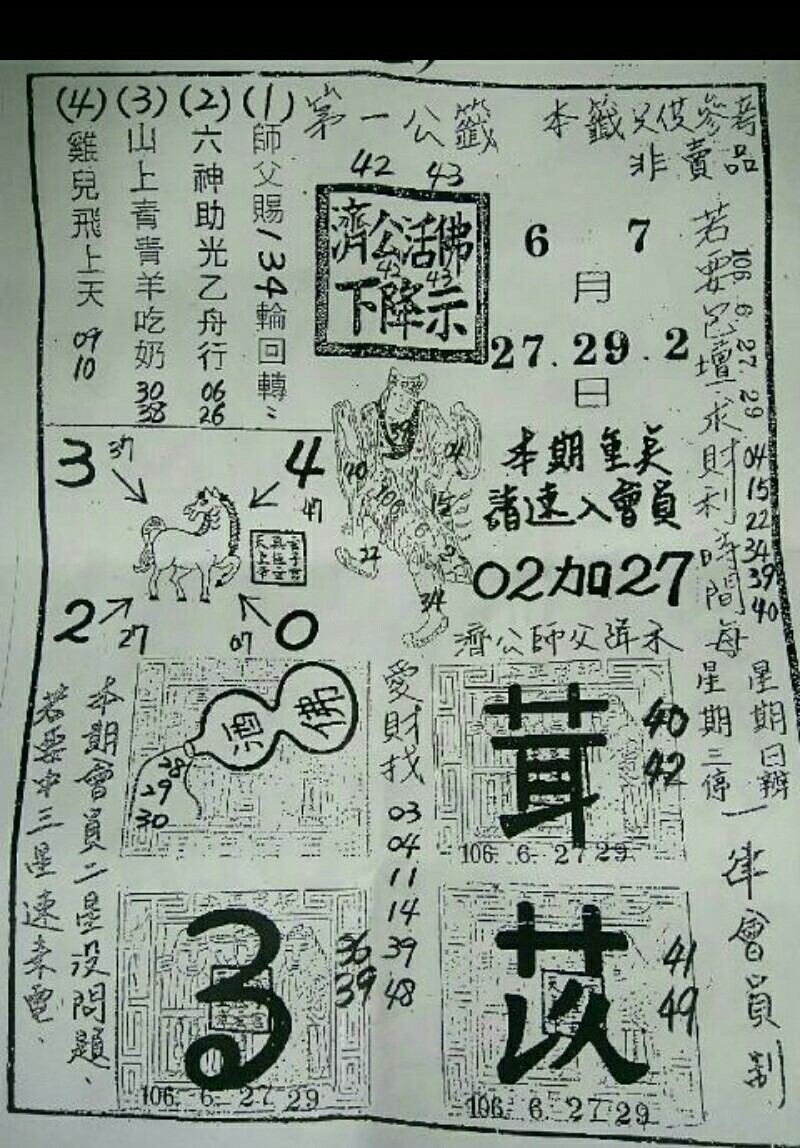 第一公籤
42 43
本籤只供參考
非賣品
(1) 師父賜134輪回轉
(2) 六神助光乙舟行 06 26
(3) 山上青青羊吃奶 30 38
(4) 雞兒飛上天 09 10
濟公活佛
42 43
下降示
6 7
月
27.29.2
日
若要
壇求財利時間每
星期三停
星期日辦
一律會員制
106 6 27 29
04
15
22
34
39
40
本期重
請速入會員
02加27
濟公師父降示
3 37
4 47
2 27
0 07
39
04
40
15
22
34
本期會員二星沒問題、
若要中三星速來電、
酒佛
28
29
30
愛財找
03
04
11
14
39
48
茸
40
42
106. 6. 27 29
3
36
39
106. 6. 27 29
苡
41
49
106. 6. 27 29